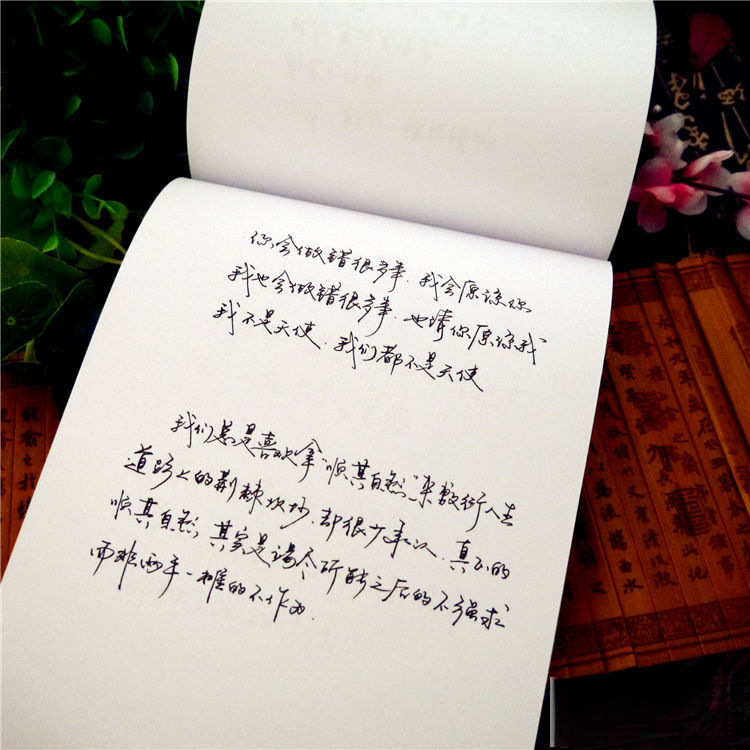 你会做错很多事.我会原谅你
我也会做错很多事.也请你原谅我
我不是天使.我们都不是天使
我们总是喜欢拿“顺其自然”来敷衍人生
道路上的荆棘坎坷.却很少承认.真正的
顺其自然,其实是竭尽所能之后的不强求
而非两手一摊的不作为.